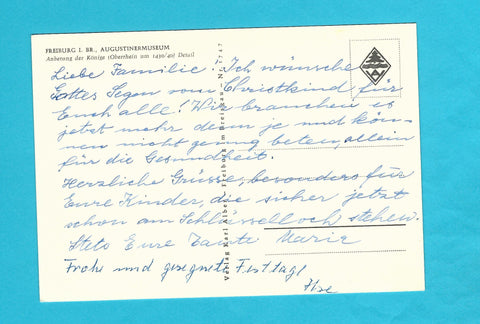 FREIBURG I. BR., AUGUSTINERMUSEUM
Anbetung der Könige (Oberrhein um 1430/40) Detail
Liebe Familie. Ich wünsche
Gottes Segen vom Christkind für
Euch alle! Wir brauchen es
jetzt mehr denn je und kön-
nen nicht genug beten, allein
für die Gesundheit.
Herzliche Grüsse, besonders für
Eure Kinder, die sicher jetzt
schon am Schlüsselloch stehen.
Stets Eure Tante Marie
Frohe und gesegnete Festtage!
Ilse
Verlag Karl Alber · Freiburg im Breisgau – Nr.